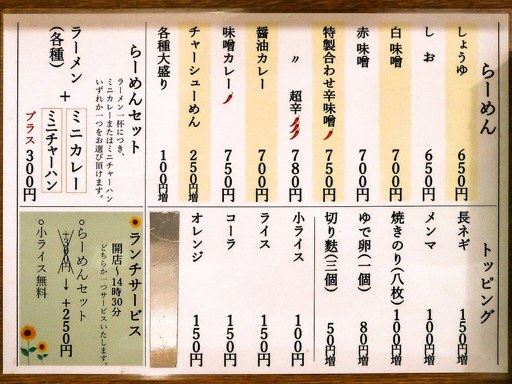 らーめん
しょうゆ 650円
しお 650円
白味噌 700円
赤味噌 700円
特製合わせ辛味噌 750円
〃 超辛 780円
醤油カレー 700円
味噌カレー 750円
チャーシューめん 250円増
各種大盛り 100円増
らーめんセット
ラーメン一杯につき、
ミニカレーまたはミニチャーハン
いずれか一つをお選び頂けます。
ラーメン(各種) + ミニカレー
ミニチャーハン
プラス300円
トッピング
長ネギ 150円増
メンマ 100円増
焼きのり(八枚) 100円増
ゆで卵(一個) 80円増
切り麩(三個) 50円増
小ライス 100円
ライス 150円
コーラ 150円
オレンジ 150円
ランチサービス
開店～14時30分
どちらか一つサービスいたします。
○らーめんセット
+300円 → +250円
○小ライス無料